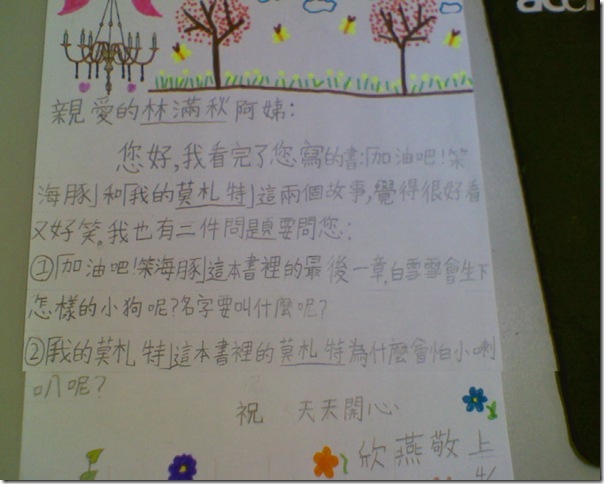 acer
親愛的林滿秋阿姨:
您好,我看完了您寫的書:「加油吧!笨
海豚」和「我的莫札特」這兩個故事,覺得很好看
又好笑。我也有二件問題要問您:
①「加油吧!笨海豚」這本書裡的最後一章,白雪雪會生下
怎樣的小狗呢?名字要叫什麼呢?
②「我的莫札特」這本書裡的莫札特為什麼會怕小喇
叭呢?
祝 天天開心
欣燕敬上
4/